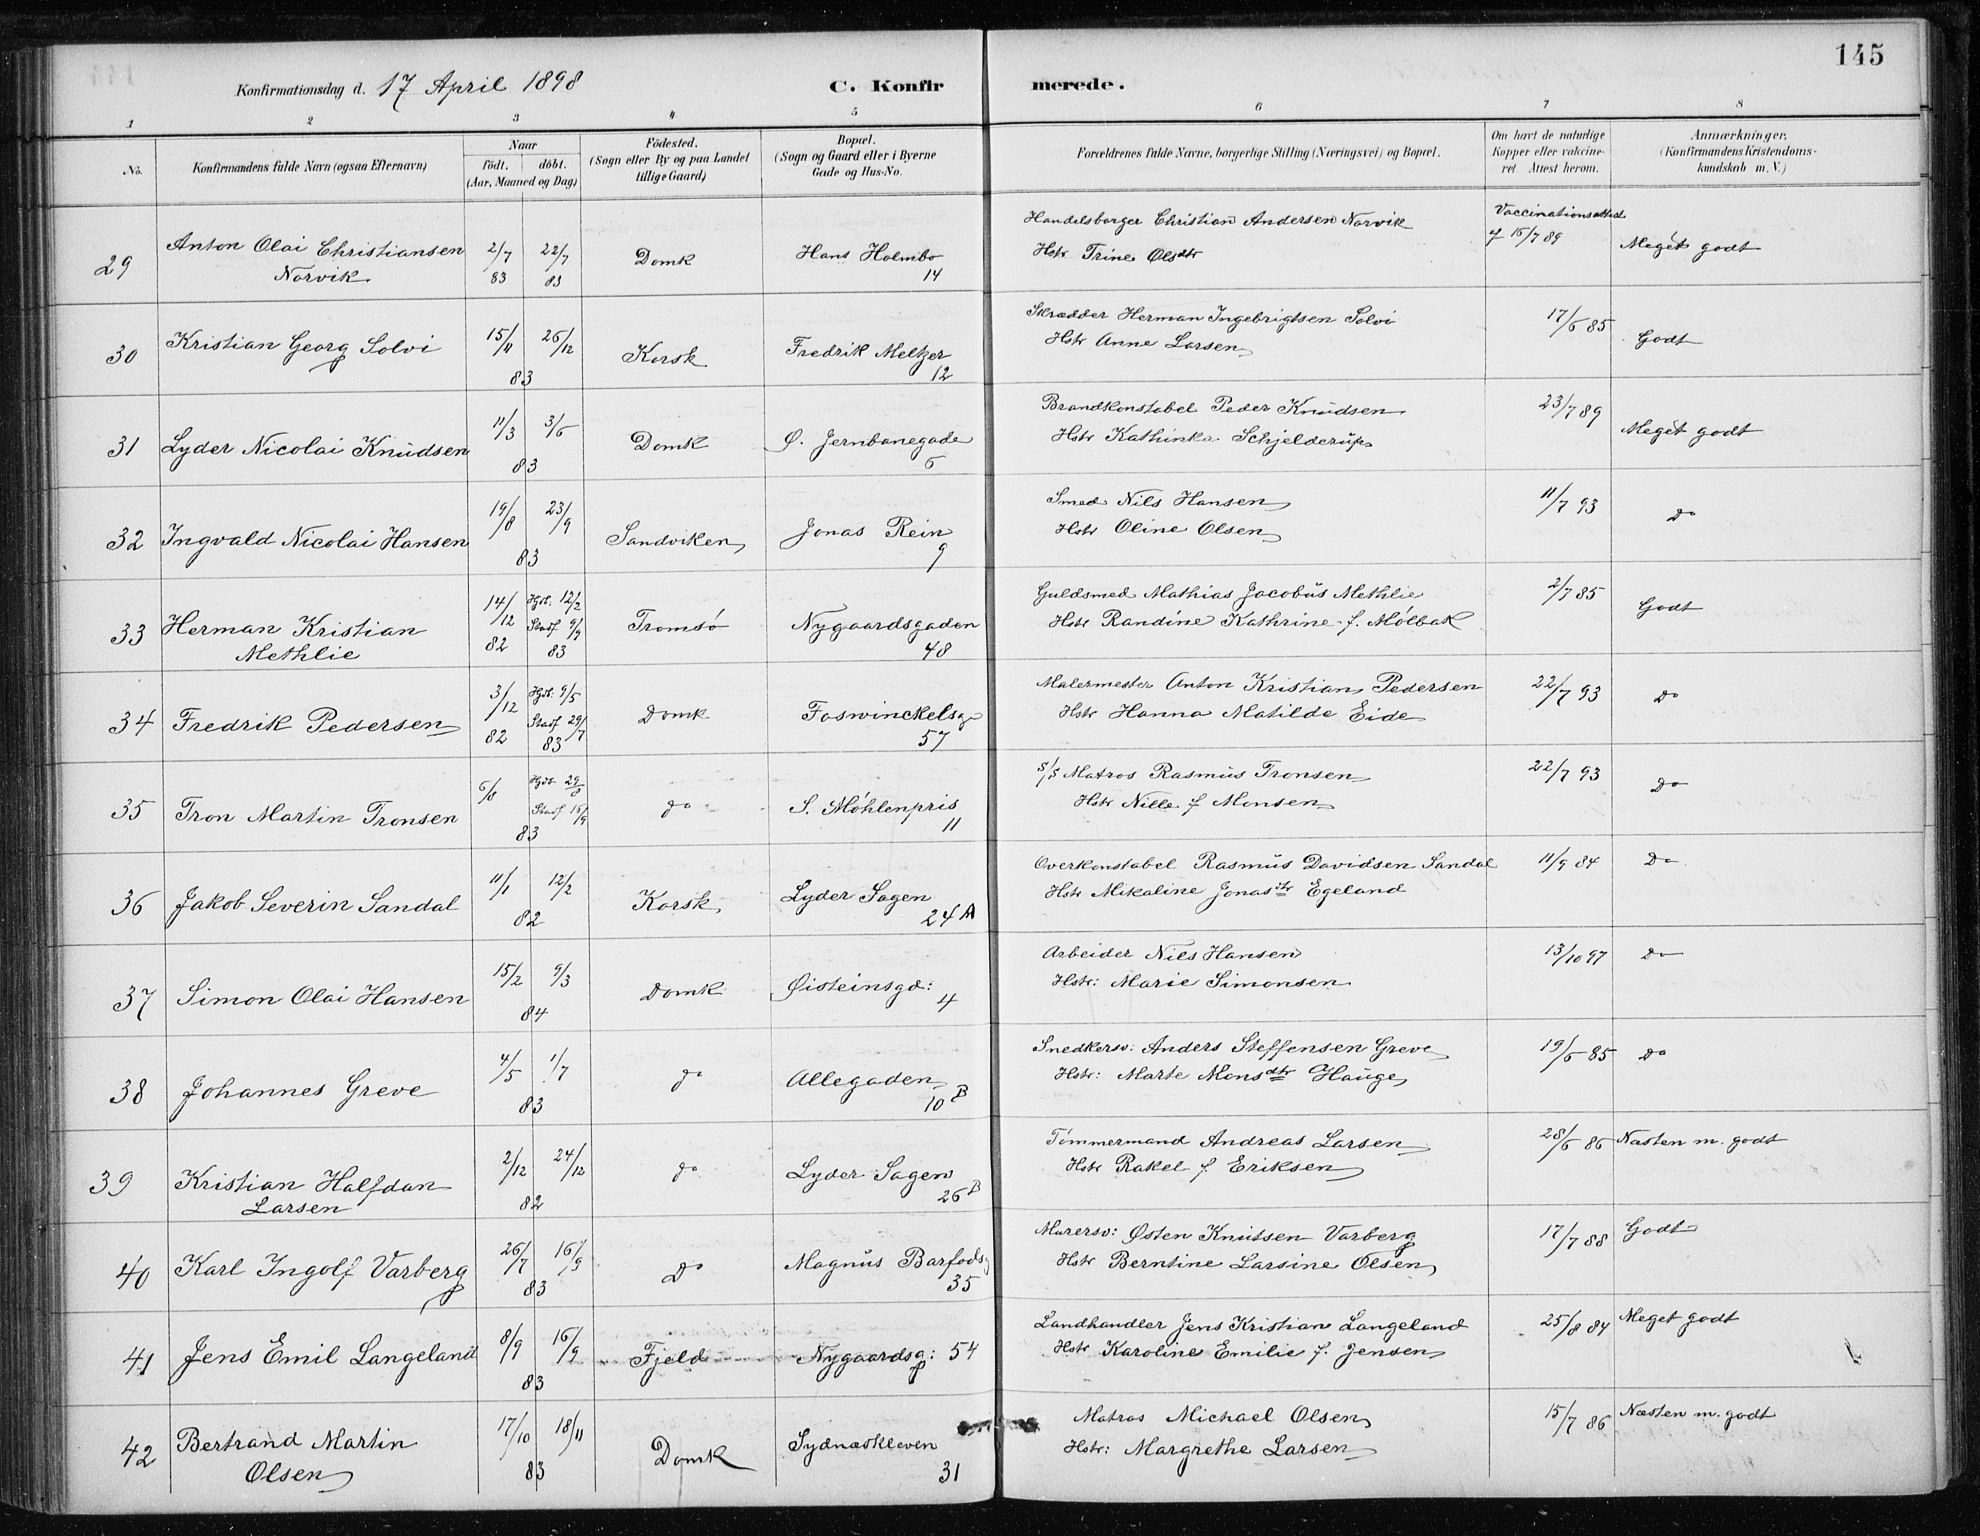 145
Konfirmationsdag d. 17 April 1898 C. Konfir merede.
1 2 3 4 5 6 7 8
No. Konfirmandens fulde Navn (ogsaa Efternavn) Naar födt. döbt. (Aar, Maaned og Dag) Födested. (Sogn eller By og paa Landet tillige Gaard) Bopæl. (Sogn og Gaard eller i Byerne Gade og Hus-No. Forældrenes fulde Navne, borgerlige Stilling (Næringsvei) og Bopæl. Om havt de naturlige Kopper eller vakcineret Attest herom. Anmærkninger. (Konfirmandens Kristendomskundskab m. V.)
29 Anton Olai Christiansen 2/7 22/7 Domk Hans Holmbo Handelsborger Christian Andersen Norvik Vaccinationsattest
Norvik 83 83 14 Hstr Trine Olsdtr af 15/7 89 Meget godt
30 Kristian Georg Solvi 15/11 26/12 Korsk Fredrik Meltzer Skrædder Herman Ingebrigtsen Solvi 17/6 85 Godt
83 12 Hstr Anne Larsen
31 Lyder Nicolai Knudsen 11/3 3/6 Domk Ø. Jernbanegade Brandkonstabel Peder Knudsen 23/7 89 Meget godt
83 6 Hstr Kathinka Schjelderup
32 Ingvald Nicolai Hansen 19/8 23/9 Sandviken Jonas Rein Smed Nils Hansen 11/7 93 Do
83 9 Hstr Oline Olsen
33 Herman Kristian 14/12 Hjdt. 12/2 Tromsø Nygaardsgaden Guldsmed Mathias Jacobus Methlie 2/7 85 Godt
Methlie 82 Stadf 9/9 83 48 Hstr Randine Kathrine f. Mølbak
34 Fredrik Pedersen 3/12 Hjdt. 9/5 Domk Foswinckelsg Malermester Anton Kristian Pedersen 22/7 93 Do
82 Stadf 29/7 83 57 Hstr Hanna Matilde Eide
35 Tron Martin Tronsen 6/8 Hjdt 29/8 do S. Møhlenpris S/S Matros Rasmus Tronsen 22/7 93 Do
83 Stadf 15/9 11 Hstr Nille f Monsen
36 Jakob Severin Sandal 11/1 12/2 Korsk Lyder Sagen Overkonstabel Rasmus Davidsen Sandal 11/9 84 Do
82 24 A Hstr Mikaline Jonasdtr Egeland
37 Simon Olai Hansen 15/2 9/3 Domk Øisteinsgd: Arbeider Nils Hansen 13/10 97 Do
84 4 Hstr: Marie Simonsen
38 Johannes Greve 4/5 1/7 do Allegaden Snedkersv: Anders Steffensen Greve 19/6 85 Do
83 10 B Hstr: Marte Monsdtr Hauge
39 Kristian Halfdan 2/12 24/12 do Lyder Sagen Tømmermand Andreas Larsen 28/6 86 Næsten m. godt
Larsen 82 26 B Hstr Rakel f Eriksen
40 Karl Ingolf Varberg 26/7 16/9 Do Magnus Barfodsg Murersv: Østen Knutsen Varberg 17/7 88 Godt
83 35 Hstr Berntine Larsine Olsen
41 Jens Emil Langeland 8/9 16/9 Fjeld Nygaardsg: 54 Landhandler Jens Kristian Langeland 25/8 84 Meget godt
83 Hstr Karoline Emilie f. Jensen
42 Bertrand Martin 17/10 18/11 Domk Sydnæskleven Matros Michael Olsen 15/7 86 Næsten m. godt
Olsen 83 31 Hstr: Margrethe Larsen